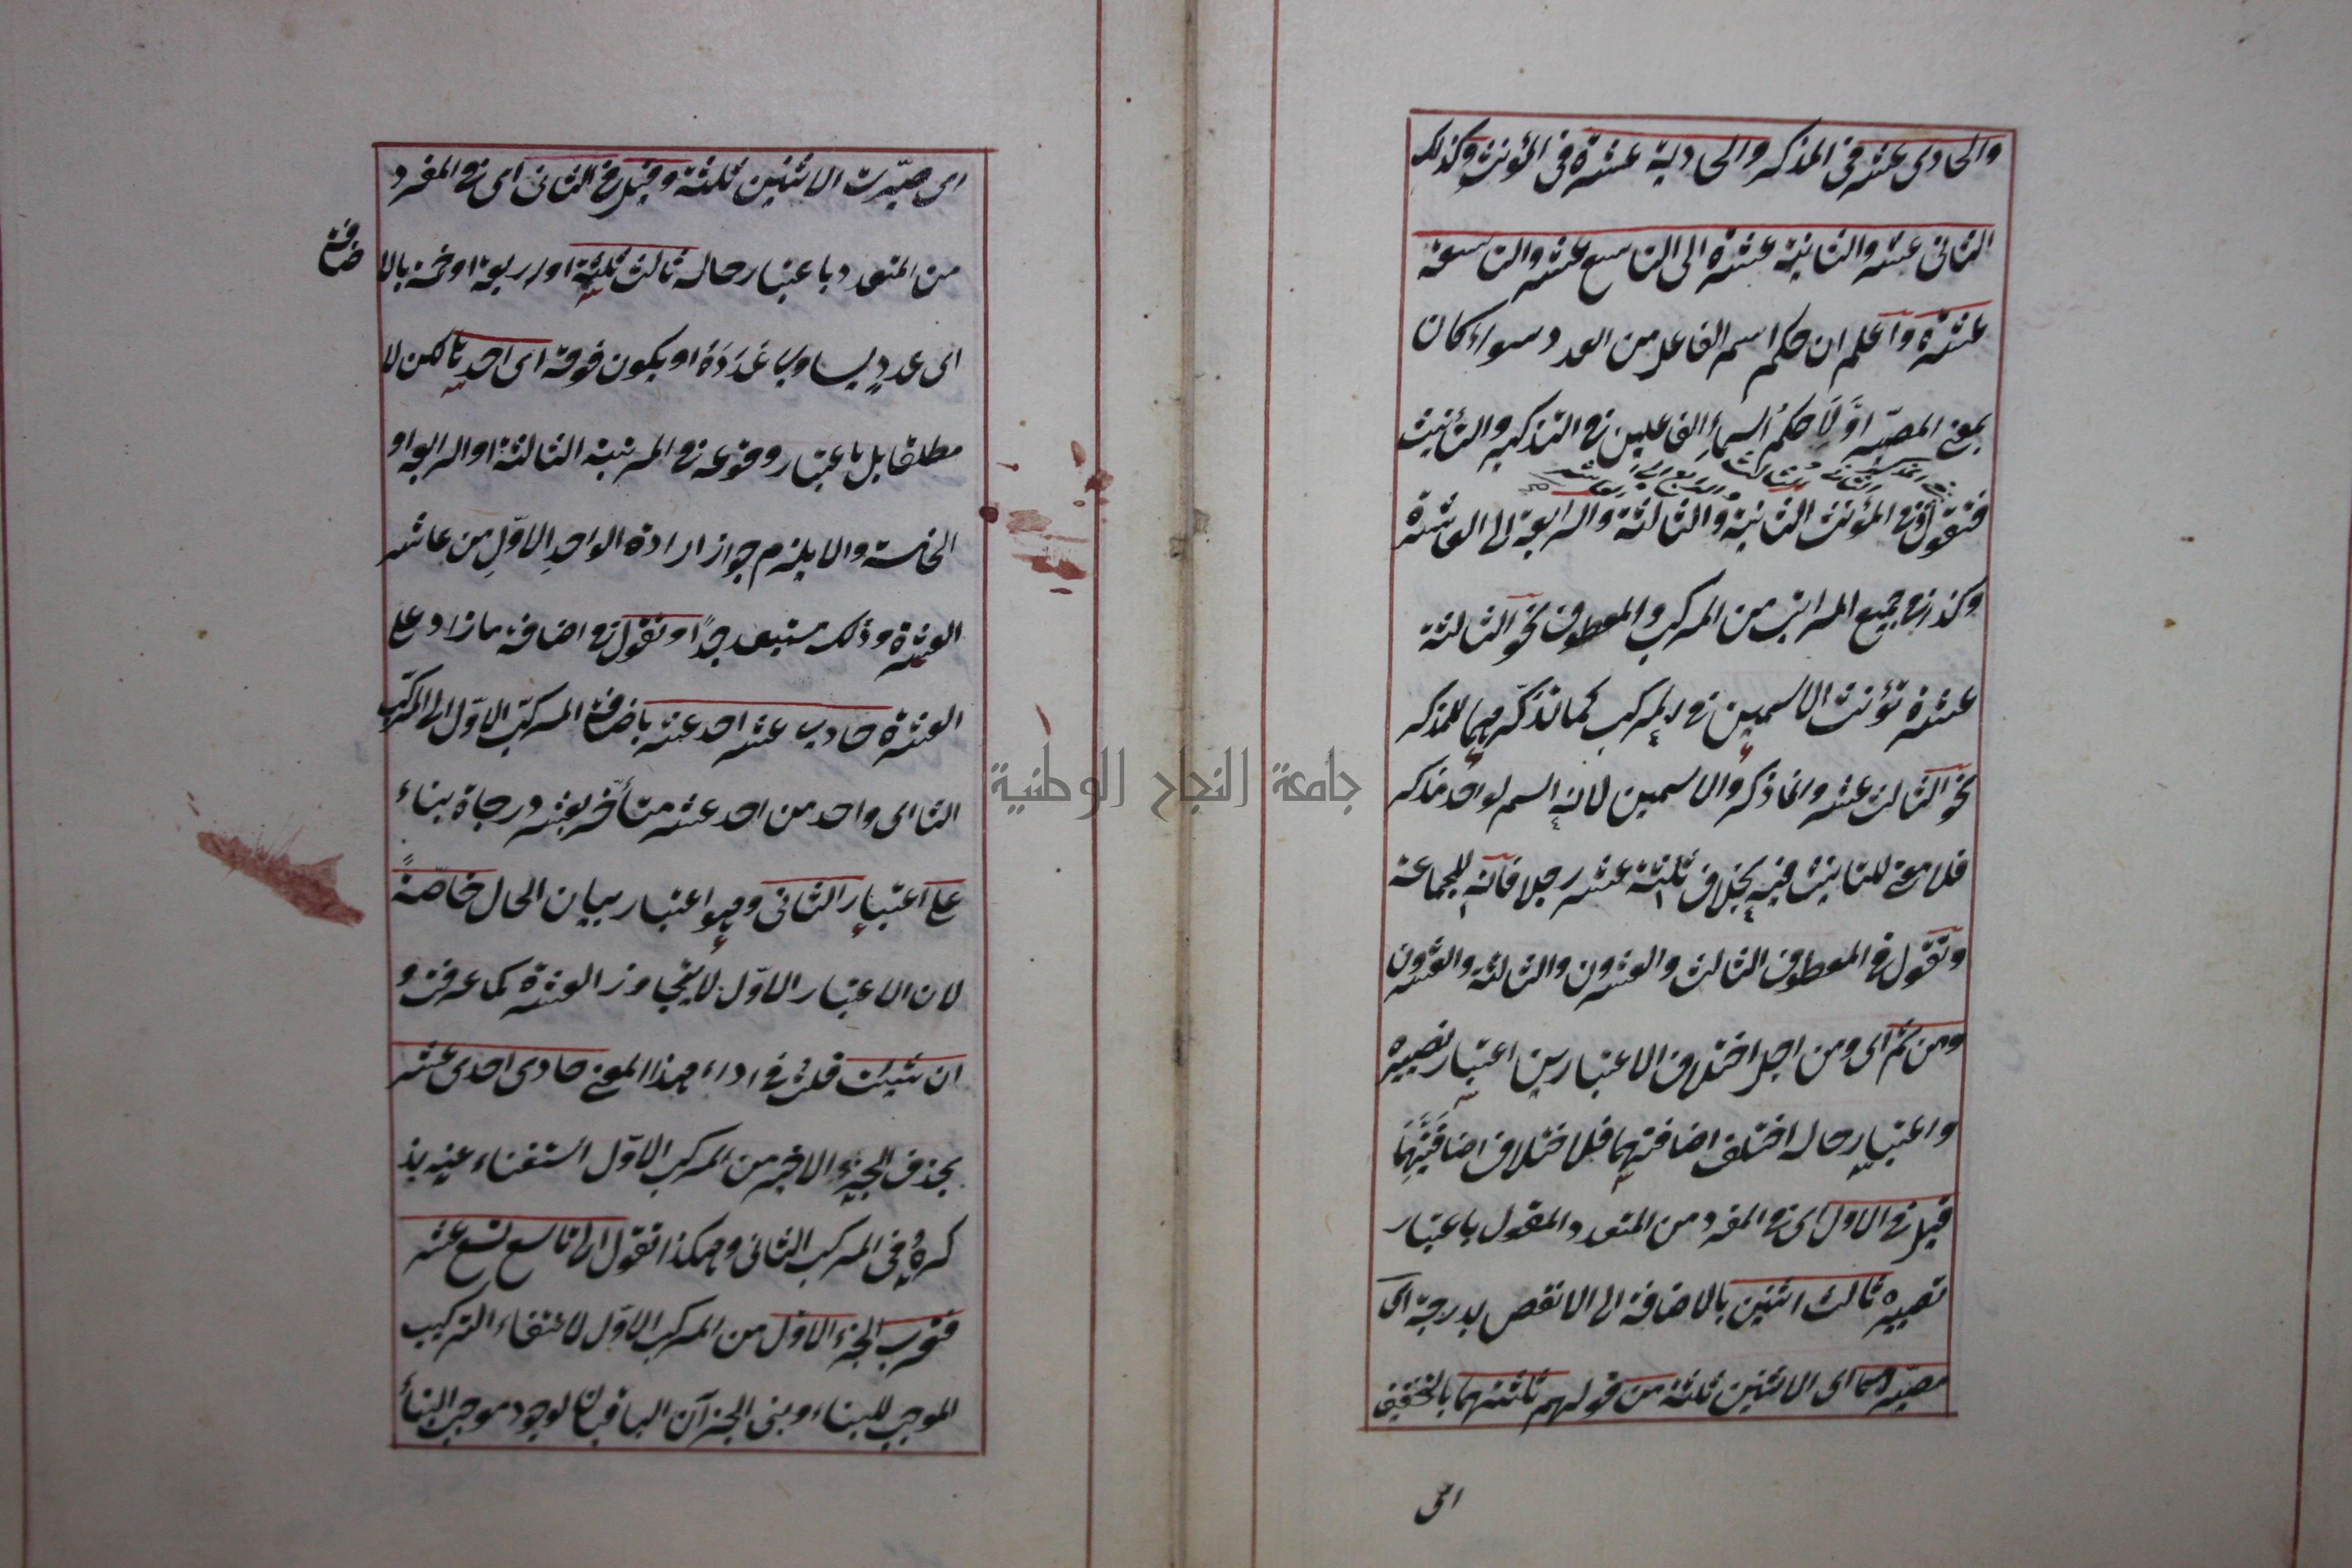 والحادى عشر فى المذكر والحادية عشرة فى المؤنث وكذلك
الثانى عشر والثانية عشرة الى التاسع عشر والتاسعة
عشرة واعلم ان حكم اسم الفاعل من العدد سواء كان
بمعنى المصيّر اوْ لَا حكمُ اسماءِ الفاعلين فى التذكير والتأنيث
فتقول فى المؤنث الثانية والثالثة والرابعة الى العاشرة
فى المذكر الثانى والثالث والرابع الى العاشر
وكذا فى جميع المراتب من المركب والمعطوف نحو الثالثة
عشرة تؤنث الاسمين فى المركب كما تذكّرهما للمذكر
نحو الثالث عشر وانما ذكروا الاسمين لانه اسم لواحد مذكر
فلا معنى للتانيث فيه بخلاف ثلثة عشر رجلا فانه للجماعة
وتقول فى المعطوف الثالث والعشرون والثالثة والعشرون
ومن ثم اى ومن اجل اختلاف الاعتبارين اعتبار تصييره
واعتبار حاله اختلف اضافتهما فلاختلاف اضافَتَيْهِمَا
قيل فى الاول اى فى المفرد من المتعدد المقول باعتبار
تصييره ثالث اثنين بالاضافة الى الانقص بدرجة اى
مصيّرهما اى الاثنين ثلثة من قولهم ثلثتهما بالتخفيف
اى
اى صيّرت الاثنين ثلثة وقيل فى الثانى اى فى المفرد
من المتعدد باعتبار حاله ثالث ثلثة او اربعة او خمسة بالا
ضافة
اى عددٍ يساوى عَدَدَهُ او يكون فوقه اى احدها لكن لا
مطلقا بل باعتبار وقوعه فى المرتبة الثالثة او الرابعة او
الخامسة والا يلزم جواز ارادة الواحدِ الاوّلِ من عاشر
العشرة وذلك مستبعد جدًا وتقول فى اضافة ما زاد على
العشرة حادى عشر احد عشر باضافة المركّب الاوّل الى المركّب
الثانى اى واحد من احد عشر متأخر بعشر درجات بناء
على اعتبار الثانى وهو اعتبار بيان الحال خاصّةً
لان الاعتبار الاوّل لا يتجاوز العشرة كما عرفت و
ان شئت قلت فى اداء هذا المعنى حادى احدى عشر
بحذف الجزء الاخير من المركب الاوّل استغناء عنه بذ
كره فى المركب الثانى وهكذا تقول الى تاسع تسع عشر
فتعرب الجزء الاوّل من المركب الاوّل لانتفاء التركيب
الموجب للبناء وبنى الجزآن الباقيان لوجود موجب البناء
جامعة النجاح الوطنية